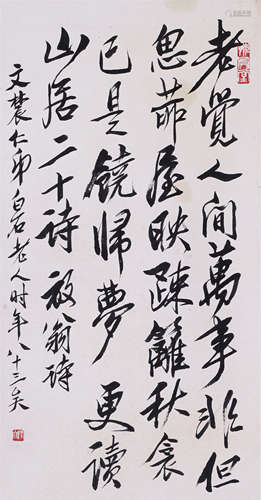 老覺人間萬事非但
思茆屋映疎籬秋衾
已是饒歸夢更讀
山居二十詩放翁詩
文農仁弟白石老人时年八十三矣